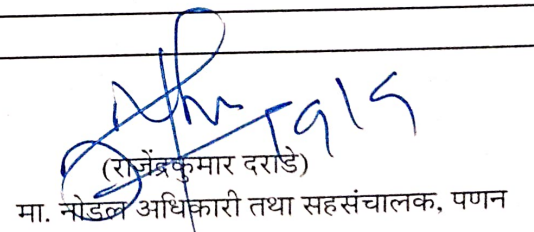 (राजेंद्रकुमार दराडे)
मा. नोडल अधिकारी तथा सहसंचालक, पणन